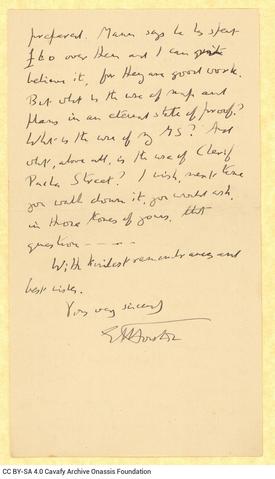 prepared. Mann says he has spent
£60 over them and I can quite
believe it, for they are good work.
But what is the use of maps and
plans in an eternal state of proof?
What is the use of my MS? And
what, above all, is the use of Cherif
Pacha Street? I wish, next time
you walk down it, you would ask,
in those tones of yours, that
question — — — —
With kindest remembrances and
best wishes.
Yours very sincerely
EMForster
CC BY-SA 4.0 Cavafy Archive Onassis Foundation